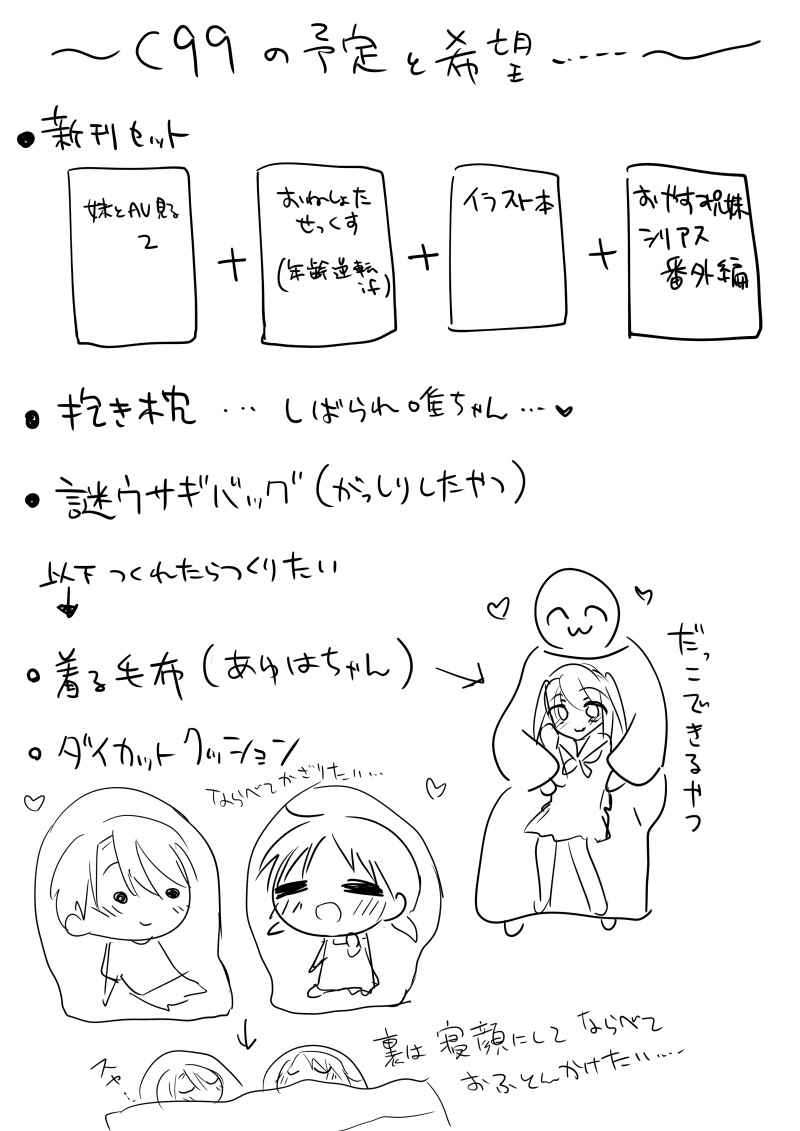 〜C99の予定と希望……〜
●新刊セット
妹とAV見る
2
+
おねしょた
せっくす
(年齢逆転
if)
+
イラスト本
+
おやすみ妹
シリアス
番外編
●抱き枕 … しばられ唯ちゃん…♥
●謎ウサギバッグ(がっしりしたやつ)
以下つくれたらつくりたい
↓
○着る毛布(あゆはちゃん)→
だっこできるやつ
○ダイカットクッション
ならべてかざりたい…
↓
スヤ…
裏は寝顔にしてならべて
おふとんかけたい……